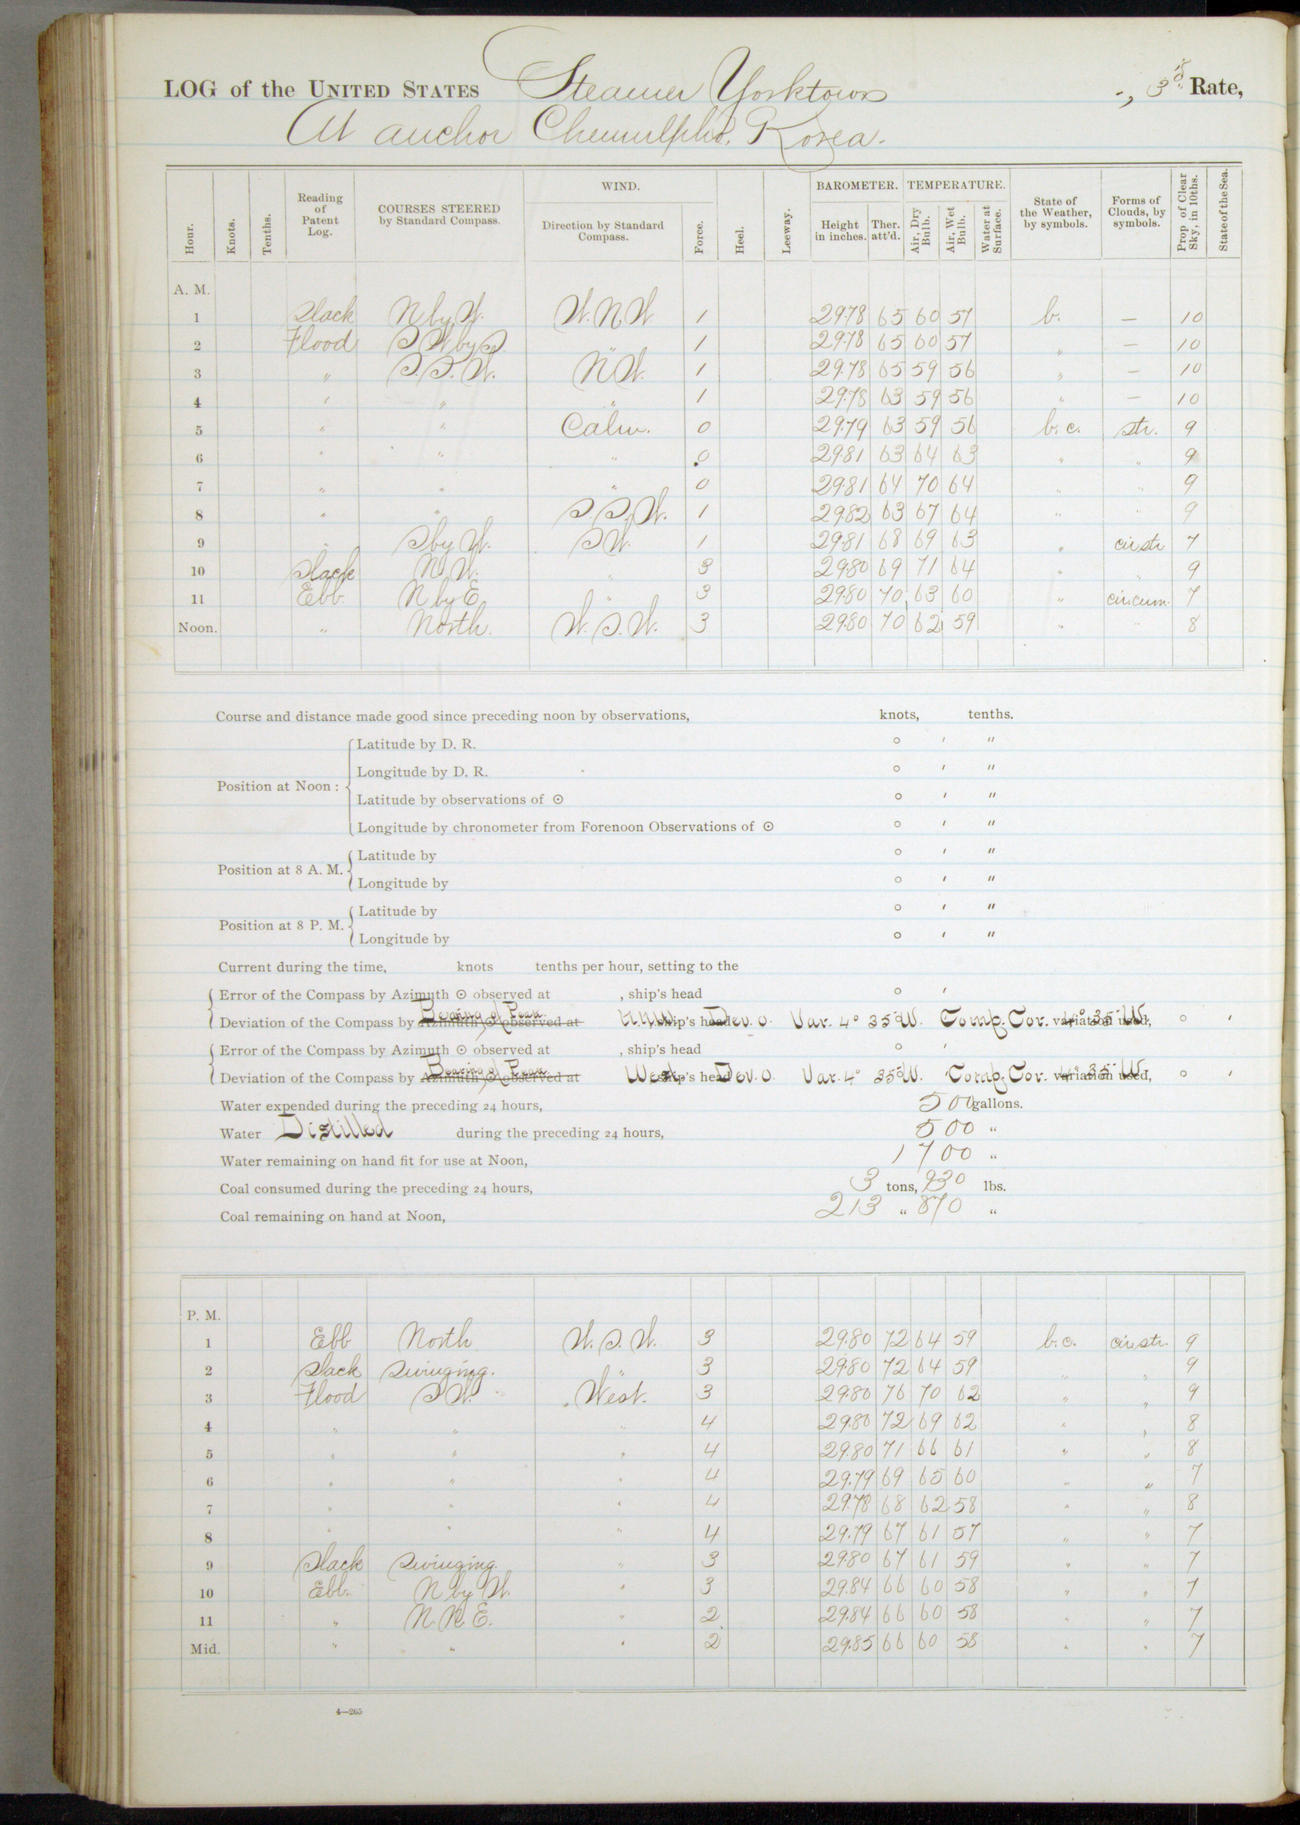 LOG of the UNITED STATES Steamer Yorktown, 3rd Rate,
At anchor Chemulpho, Korea.
Hour. Knots. Tenths. Reading of Patent Log. COURSES STEERED by Standard Compass. WIND. Direction by Standard Compass. Force. Heel. Leeway. BAROMETER. Height in inches. Ther. att'd. TEMPERATURE. Air, Dry Bulb. Air, Wet Bulb. Water at Surface. State of the Weather, by symbols. Forms of Clouds, by symbols. Prop. of Clear Sky, in 10ths. State of the Sea.
A. M.
1 Slack N by W. W.N.W 1 29.78 65 60 57 b. — 10
2 Flood S W by S. " 1 29.78 65 60 57 " — 10
3 " S.S.W. N.W. 1 29.78 65 59 56 " — 10
4 " " " 1 29.78 63 59 56 " — 10
5 " " Calm. 0 29.79 63 59 56 b.c. str. 9
6 " " " 0 29.81 63 64 63 " " 9
7 " " " 0 29.81 64 70 64 " " 9
8 " " S.S.W. 1 29.82 63 67 64 " " 9
9 " S by W. S.W. 1 29.81 68 69 63 " cir.str 7
10 Slack N.W. " 3 29.80 69 71 64 " " 9
11 Ebb. N by E. " 3 29.80 70 63 60 " cir.cum. 7
Noon. " North. W.S.W. 3 29.80 70 62 59 " " 8
Course and distance made good since preceding noon by observations, knots, tenths.
Position at Noon :
Latitude by D. R. ° ′ ″
Longitude by D. R. ° ′ ″
Latitude by observations of ☉ ° ′ ″
Longitude by chronometer from Forenoon Observations of ☉ ° ′ ″
Position at 8 A. M.
Latitude by ° ′ ″
Longitude by ° ′ ″
Position at 8 P. M.
Latitude by ° ′ ″
Longitude by ° ′ ″
Current during the time, knots tenths per hour, setting to the
Error of the Compass by Azimuth ☉ observed at , ship's head ° ′
Bearing of Peak
Deviation of the Compass by Azimuth ☉ observed at ship's head Dev. 0. Var. 4° 35' W. Comp. Cor. 4° 35' W. variation used, ° ′
Error of the Compass by Azimuth ☉ observed at , ship's head ° ′
Bearing of Peak
Deviation of the Compass by Azimuth ☉ observed at West ship's head Dev. 0. Var. 4° 35' W. Comp. Cor. 4° 35' W. variation used, ° ′
Water expended during the preceding 24 hours, 500 gallons.
Water Distilled during the preceding 24 hours, 500 "
Water remaining on hand fit for use at Noon, 1700 "
Coal consumed during the preceding 24 hours, 3 tons, 930 lbs.
Coal remaining on hand at Noon, 213 " 870 "
P. M.
1 Ebb North W.S.W. 3 29.80 72 64 59 b.c. cir.str. 9
2 Slack swinging. " 3 29.80 72 64 59 " " 9
3 Flood S.W. West. 3 29.80 76 70 62 " " 9
4 " " " 4 29.80 72 69 62 " " 8
5 " " " 4 29.80 71 66 61 " " 8
6 " " " 4 29.79 69 65 60 " " 7
7 " " " 4 29.78 68 62 58 " " 8
8 " " " 4 29.79 67 61 57 " " 7
9 Slack swinging " 3 29.80 67 61 59 " " 7
10 Ebb. N by W. " 3 29.84 66 60 58 " " 7
11 " N.N.E. " 2 29.84 66 60 58 " " 7
Mid. " " " 2 29.85 66 60 58 " " 7
4—265